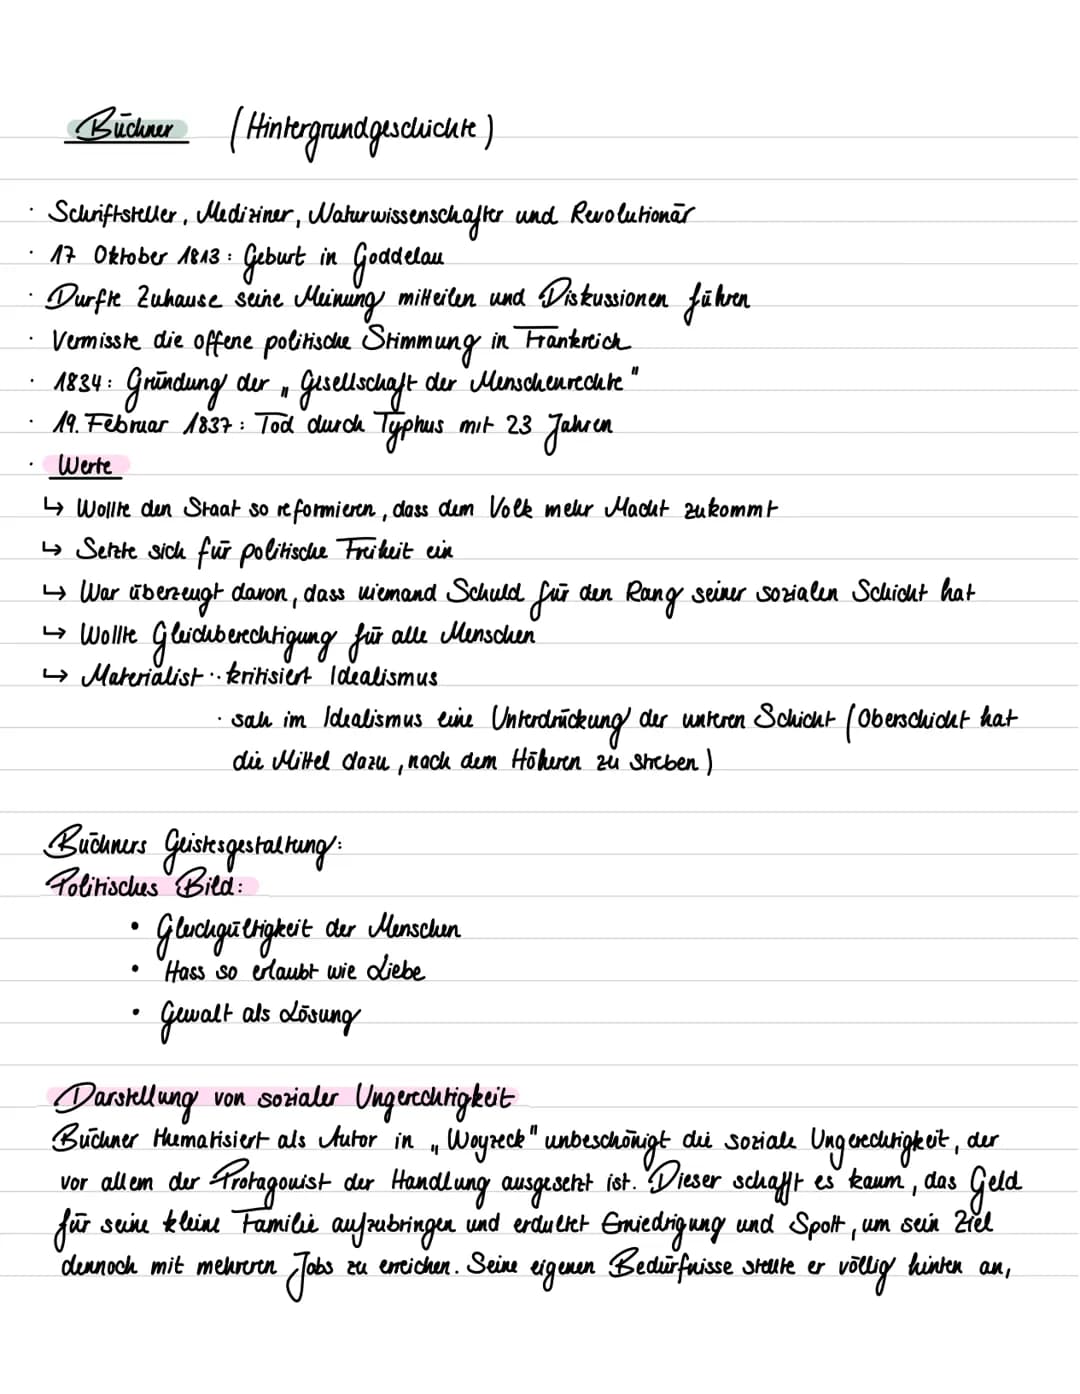 Büchner (Hintergrundgeschichte)
· Schriftsteller, Mediziner, Naturwissenschafter und Revolutionär
· 17 Oktober 1813: Geburt in Goddelau
· Durfte Zuhause seine Meinung mitteilen und Diskussionen führen
· Vermisste die offene politische Stimmung in Frankreich
· 1834: Gründung der „Gesellschaft der Menschenrechte"
· 19. Februar 1837: Tod durch Typhus mit 23 Jahren
· Werte
↳ Wollte den Staat so reformieren, dass dem Volk mehr Macht zukommt
↳ Setzte sich für politische Freiheit ein
↳ War überzeugt davon, dass niemand Schuld für den Rang seiner sozialen Schicht hat
↳ Wollte Gleichberechtigung für alle Menschen
↳ Materialist ·· kritisiert Idealismus
· sah im Idealismus eine Unterdrückung der unteren Schicht (Oberschicht hat
die Mittel dazu, nach dem Höheren zu streben)
Büchners Geistesgestaltung:
Politisches Bild:
• Gleichgültigkeit der Menschen
• Hass so erlaubt wie Liebe
• Gewalt als Lösung
Darstellung von sozialer Ungerechtigkeit
Büchner thematisiert als Autor in „Woyzeck" unbeschönigt die soziale Ungerechtigkeit, der
vor allem der Protagonist der Handlung ausgesetzt ist. Dieser schafft es kaum, das Geld
für seine kleine Familie aufzubringen und erduldet Erniedrigung und Spott, um sein Ziel
dennoch mit mehreren Jobs zu erreichen. Seine eigenen Bedürfnisse stellte er völlig hinten an,